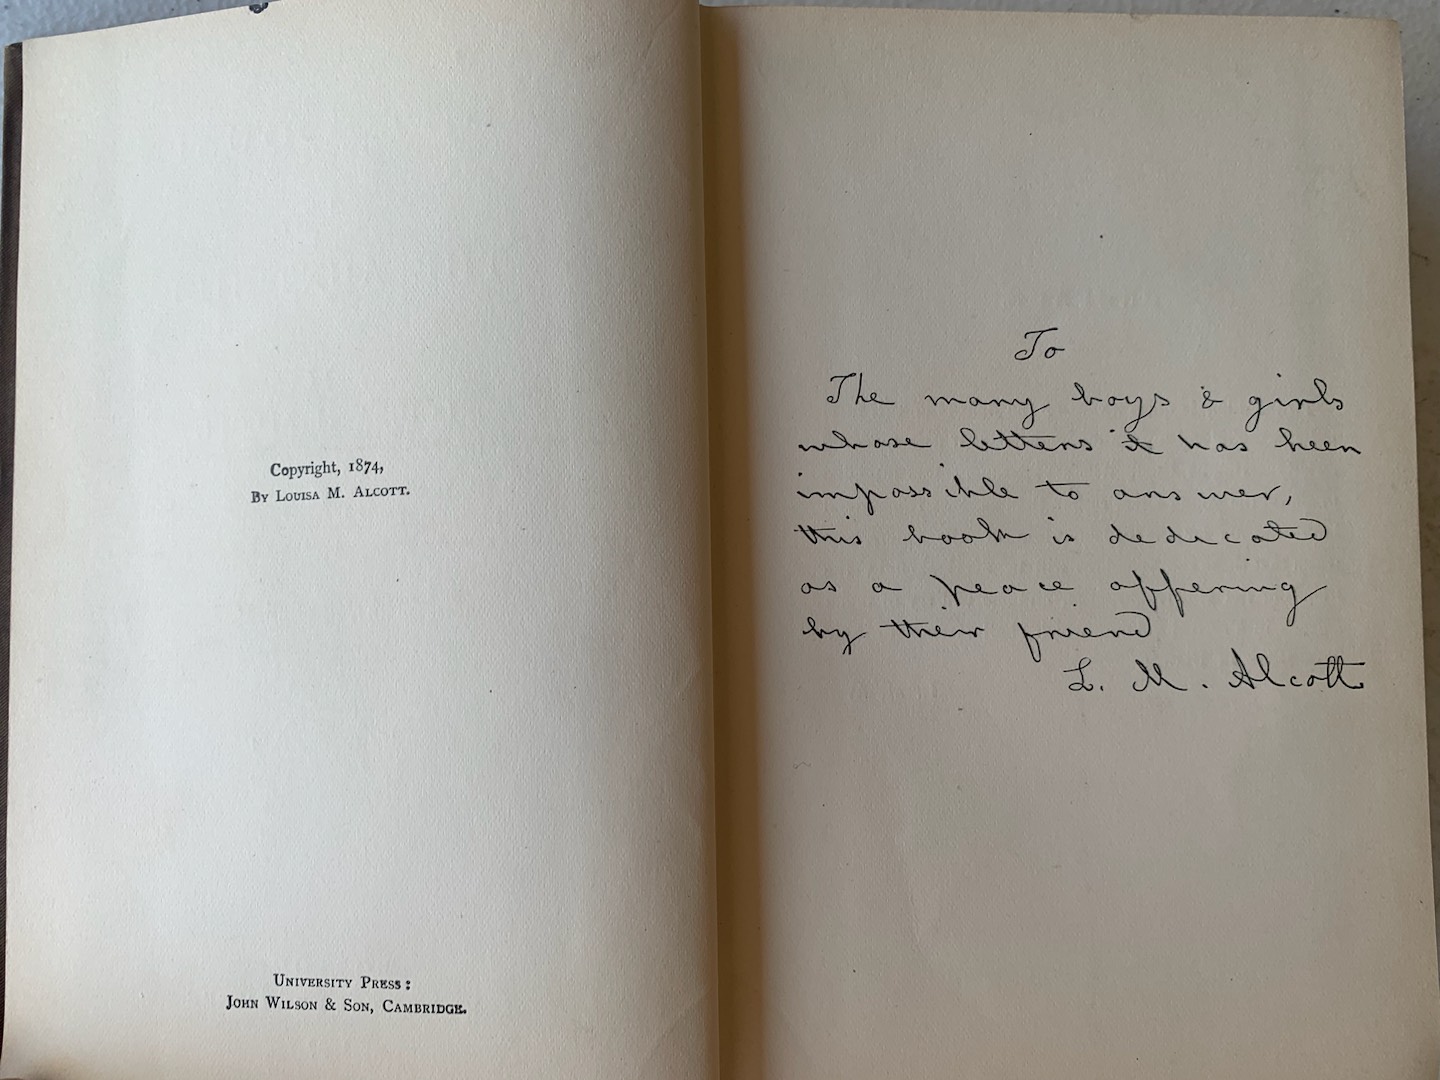 Copyright, 1874,
By Louisa M. Alcott.
University Press:
John Wilson & Son, Cambridge.
To
The many boys & girls
whose letters it has been
impossible to answer,
this book is dedicated
as a peace offering
by their friend
L. M. Alcott